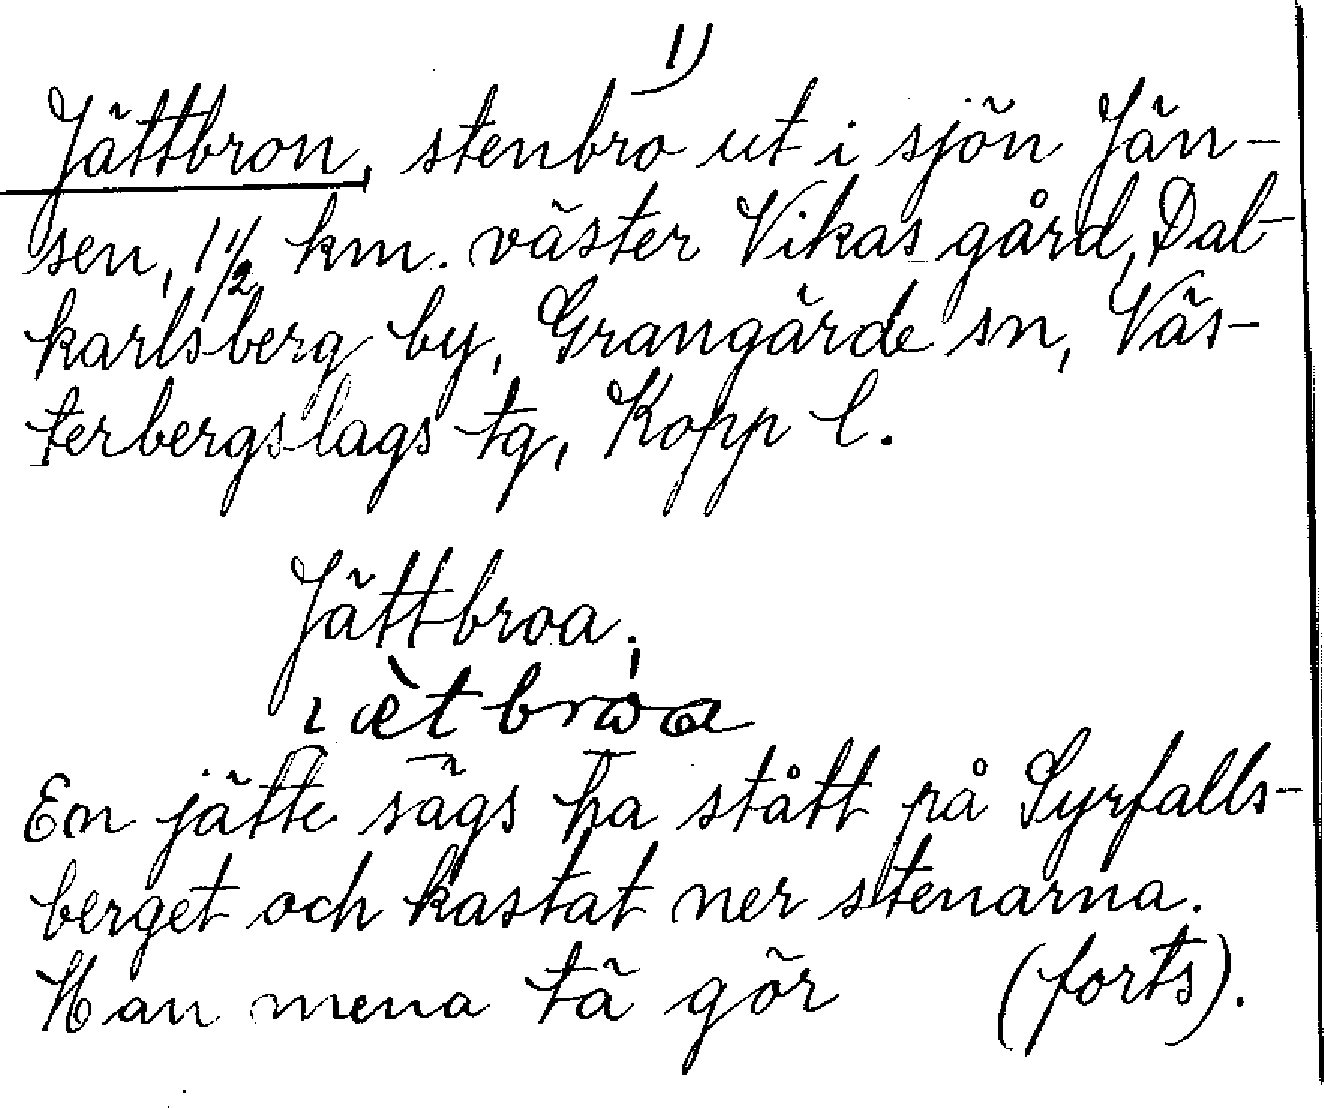 1)
Jättbron, stenbro ut i sjön Jän-
sen, 1 1/2 km. väster Vikas gård, Dal-
karlsberg by, Grangärde sn, Väs-
terbergslags tg, Kopp l.
Jättbroa.
En jätte sägs ha stått på Syrfalls-
berget och kastat ner stenarna.
Han mena tä gör (forts).